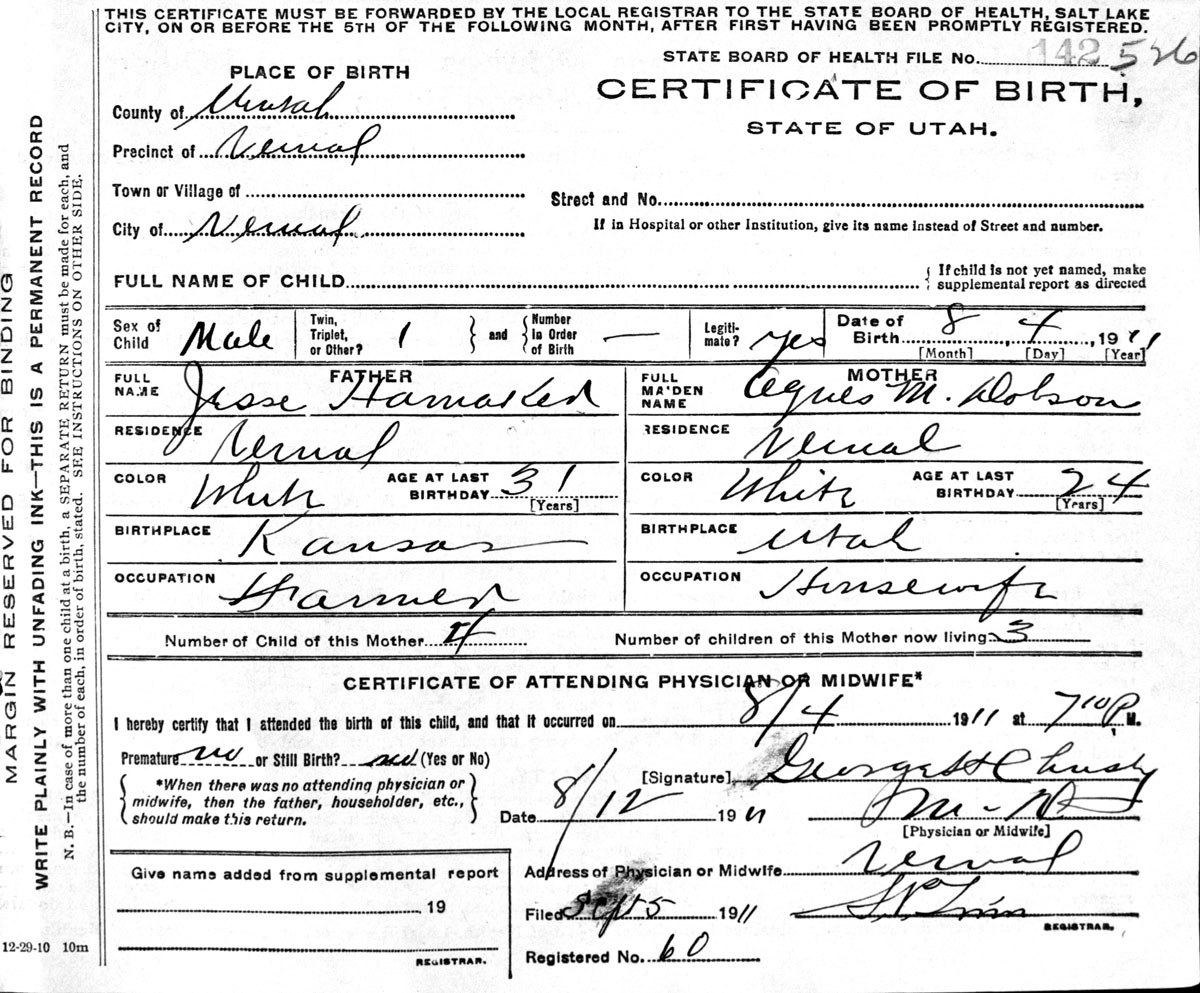 THIS CERTIFICATE MUST BE FORWARDED BY THE LOCAL REGISTRAR TO THE STATE BOARD OF HEALTH, SALT LAKE
CITY, ON OR BEFORE THE 5TH OF THE FOLLOWING MONTH, AFTER FIRST HAVING BEEN PROMPTLY REGISTERED.
MARGIN RESERVED FOR BINDING
WRITE PLAINLY WITH UNFADING INK—THIS IS A PERMANENT RECORD
N. B.—In case of more than one child at a birth, a SEPARATE RETURN must be made for each, and
the number of each, in order of birth, stated. SEE INSTRUCTIONS ON OTHER SIDE.
STATE BOARD OF HEALTH FILE No. 142526
PLACE OF BIRTH
CERTIFICATE OF BIRTH,
STATE OF UTAH.
County of
Precinct of Vernal
Town or Village of
City of Vernal
Street and No.
If in Hospital or other Institution, give its name instead of Street and number.
FULL NAME OF CHILD
If child is not yet named, make
supplemental report as directed
Sex of Child Male
Twin, Triplet, or Other? 1
and
Number in Order of Birth —
Legiti-mate? yes
Date of Birth 8, 4, 1911
[Month] [Day] [Year]
FATHER
FULL NAME Jesse Hamaker
RESIDENCE Vernal
COLOR White AGE AT LAST BIRTHDAY 31
[Years]
BIRTHPLACE Kansas
OCCUPATION Farmer
MOTHER
FULL MAIDEN NAME Agnes M. Dobson
RESIDENCE Vernal
COLOR White AGE AT LAST BIRTHDAY 24
[Years]
BIRTHPLACE Utah
OCCUPATION Housewife
Number of Child of this Mother 4 Number of children of this Mother now living 3
CERTIFICATE OF ATTENDING PHYSICIAN OR MIDWIFE*
I hereby certify that I attended the birth of this child, and that it occurred on 8/4 1911 at 7 10 P M.
Premature no or Still Birth? no (Yes or No)
*When there was no attending physician or
midwife, then the father, householder, etc.,
should make this return.
[Signature] George H Christy
Date 8/12 1911 M. D.
[Physician or Midwife]
Address of Physician or Midwife Vernal
Filed Sept 5 1911
REGISTRAR.
Registered No. 60
Give name added from supplemental report
19
REGISTRAR.
12-29-10 10m